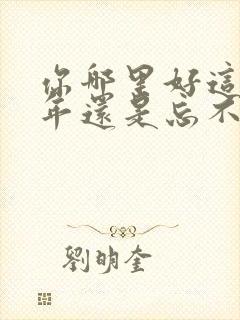 你哪里好這
年還是忘不
劉明奎